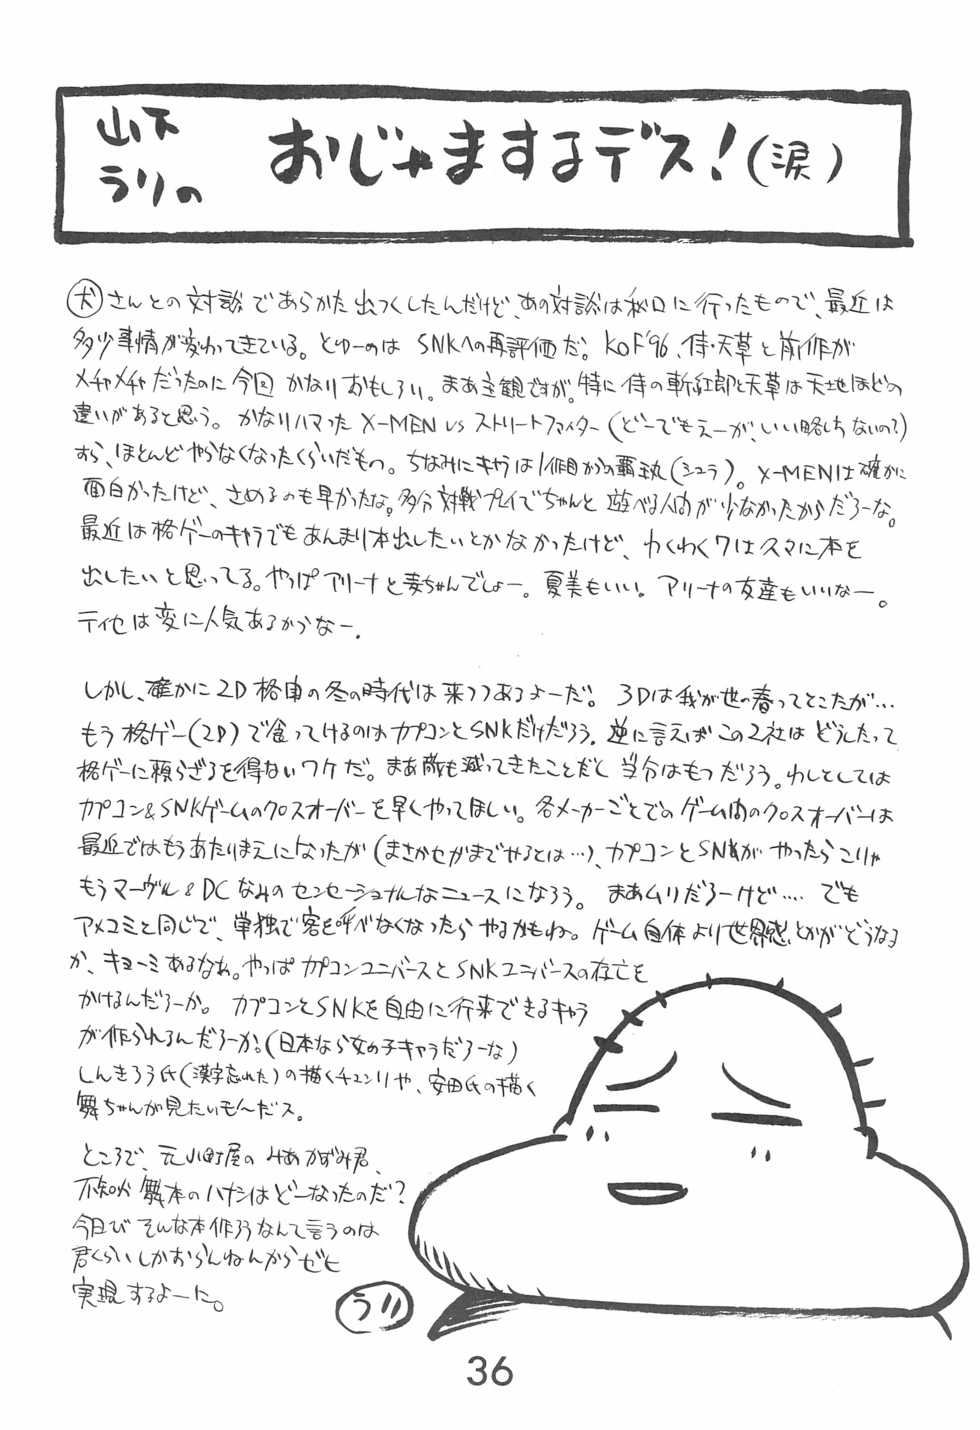 山下
うりの
おじゃまするデス!(涙)
犬さんとの対談であらかた出つくしたんだけど、あの対談は秋口に行ったもので、最近は
多少事情が変わってきている。とゆーのは SNKへの再評価だ。KOF'96、侍・天草と前作が
メチャメチャだったのに今回かなりおもしろい。まあ主観ですが。特に侍の斬紅郎と天草は天地ほどの
違いがあると思う。かなりハマった X-MEN vs ストリートファイター(どーでもえーが、いい略しちないの?)
すら、ほとんどやらなくなったくらいだもの。ちなみにキャラは1作目からの覇王丸(シュラ)。X-MENは確かに
面白かったけど、さめるのも早かったな。多分対戦プレイでちゃんと遊べる人間が少なかったからだろーな。
最近は格ゲーのキャラでもあんまり本出したいとかなかったけど、わくわく7は久々に本を
出したいと思ってる。やっぱアリーナと麦ちゃんでしょー。夏美もいい。アリーナの友達もいいなー。
ティセは変に人気あるからなー.
しかし、確かに2D格闘の冬の時代は来つつあるよーだ。3Dは我が世の春ってとこだが…
もう格ゲー(2D)で食ってけるのはカプコンとSNKだけだろう。逆に言えばこの2社はどうしたって
格ゲーに頼らざるを得ないワケだ。まあ敵も減ってきたことだし当分はもつだろう。わしとしては
カプコン&SNKゲームのクロスオーバーを早くやってほしい。各メーカーごとでのゲーム間のクロスオーバーは
最近ではもうあたりまえになったが(まさかセガまでやるとは…)、カプコンとSNKがやったらこりゃ
もうマーヴル&DCなみのセンセーショナルなニュースになろう。まあムリだろーけど…. でも
アメコミと同じで、単独で客を呼べなくなったらやるかもね。ゲーム自体より世界感とかがどうなる
か、キョーミあるなぁ。やっぱカプコンユニバースとSNKユニバースの存亡を
かけるんだろーか。カプコンとSNKを自由に行来できるキャラ
が作られるんだろーか。(日本なら女の子キャラだろーな)
しんきろう氏(漢字忘れた)の描くチュンリや、安田氏の描く
舞ちゃんが見たいもんだス。
ところで、元小町屋のみあかずみ君、
不知火舞本のハナシはどーなったのだ?
今日びそんな本作ろうなんて言うのは
君くらいしかおらんねんからゼヒ
実現するよーに。
うり
36